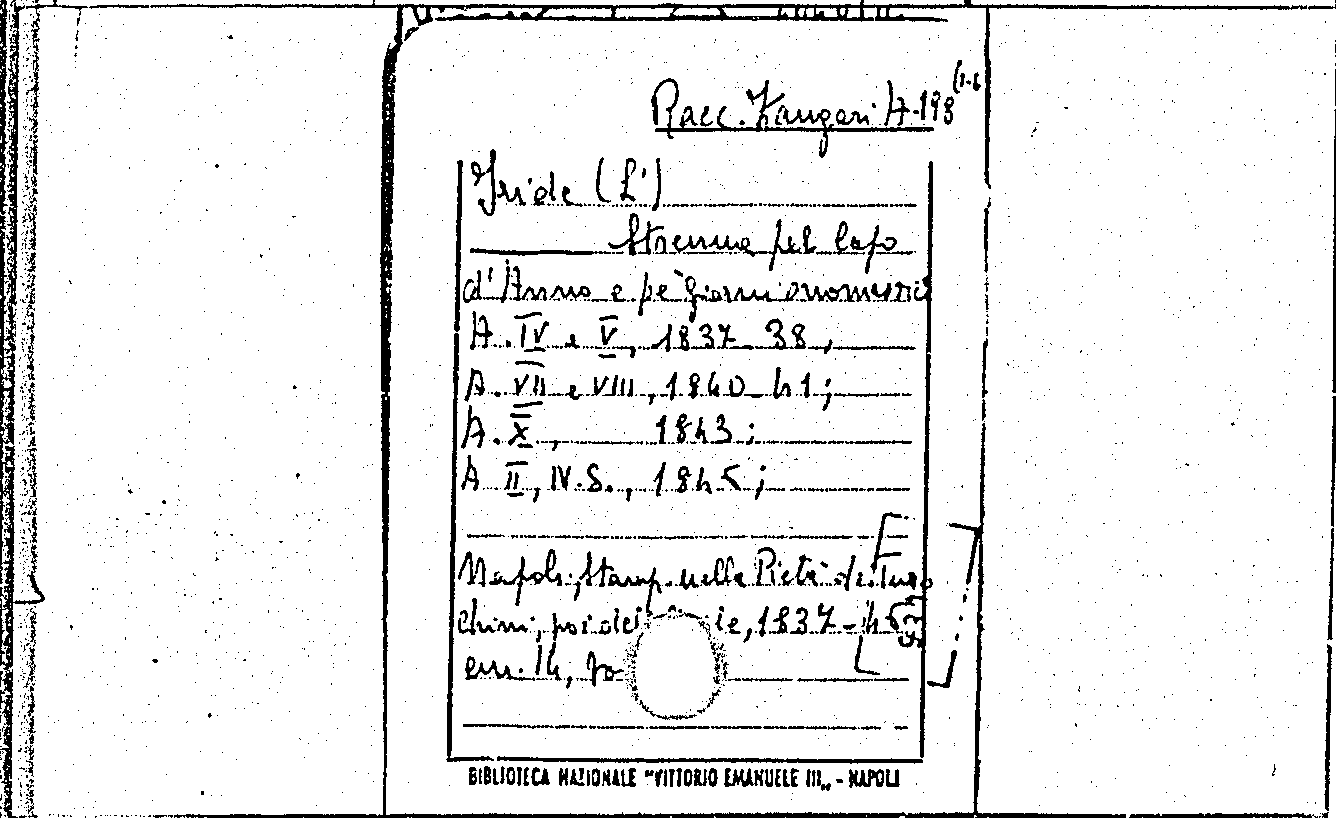 Racc. Zangari A-198 (1-6
Iride (L')
Strenna pel Capo
d'Anno e pe' giorni onomastici
A. IV e V, 1837-38,
A. VII e VIII, 1840-41;
A. X, 1843;
A II, IV.S., 1845;
Napoli, Stamp. nella Pietà de' Tur
chini, poi del 1837-45
cm. 14,
BIBLIOTECA NAZIONALE "VITTORIO EMANUELE III„ - NAPOLI